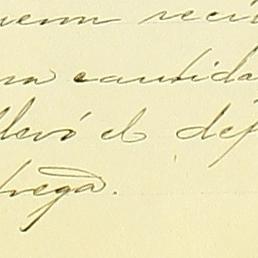 quenn reci
na cantida
llevó el dep
trega.